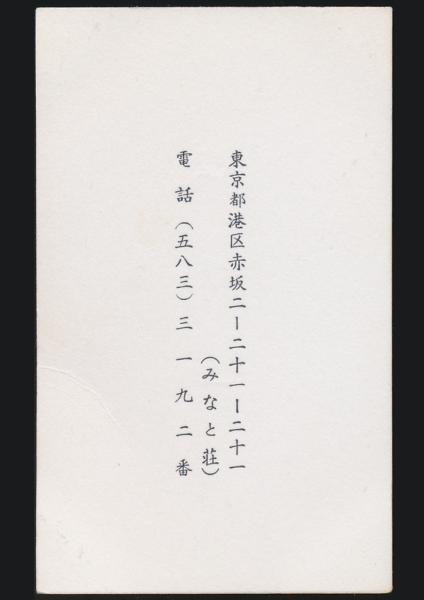 東京都港区赤坂二ー二十一ー二十一
(みなと荘)
電話(五八三)三一九二番